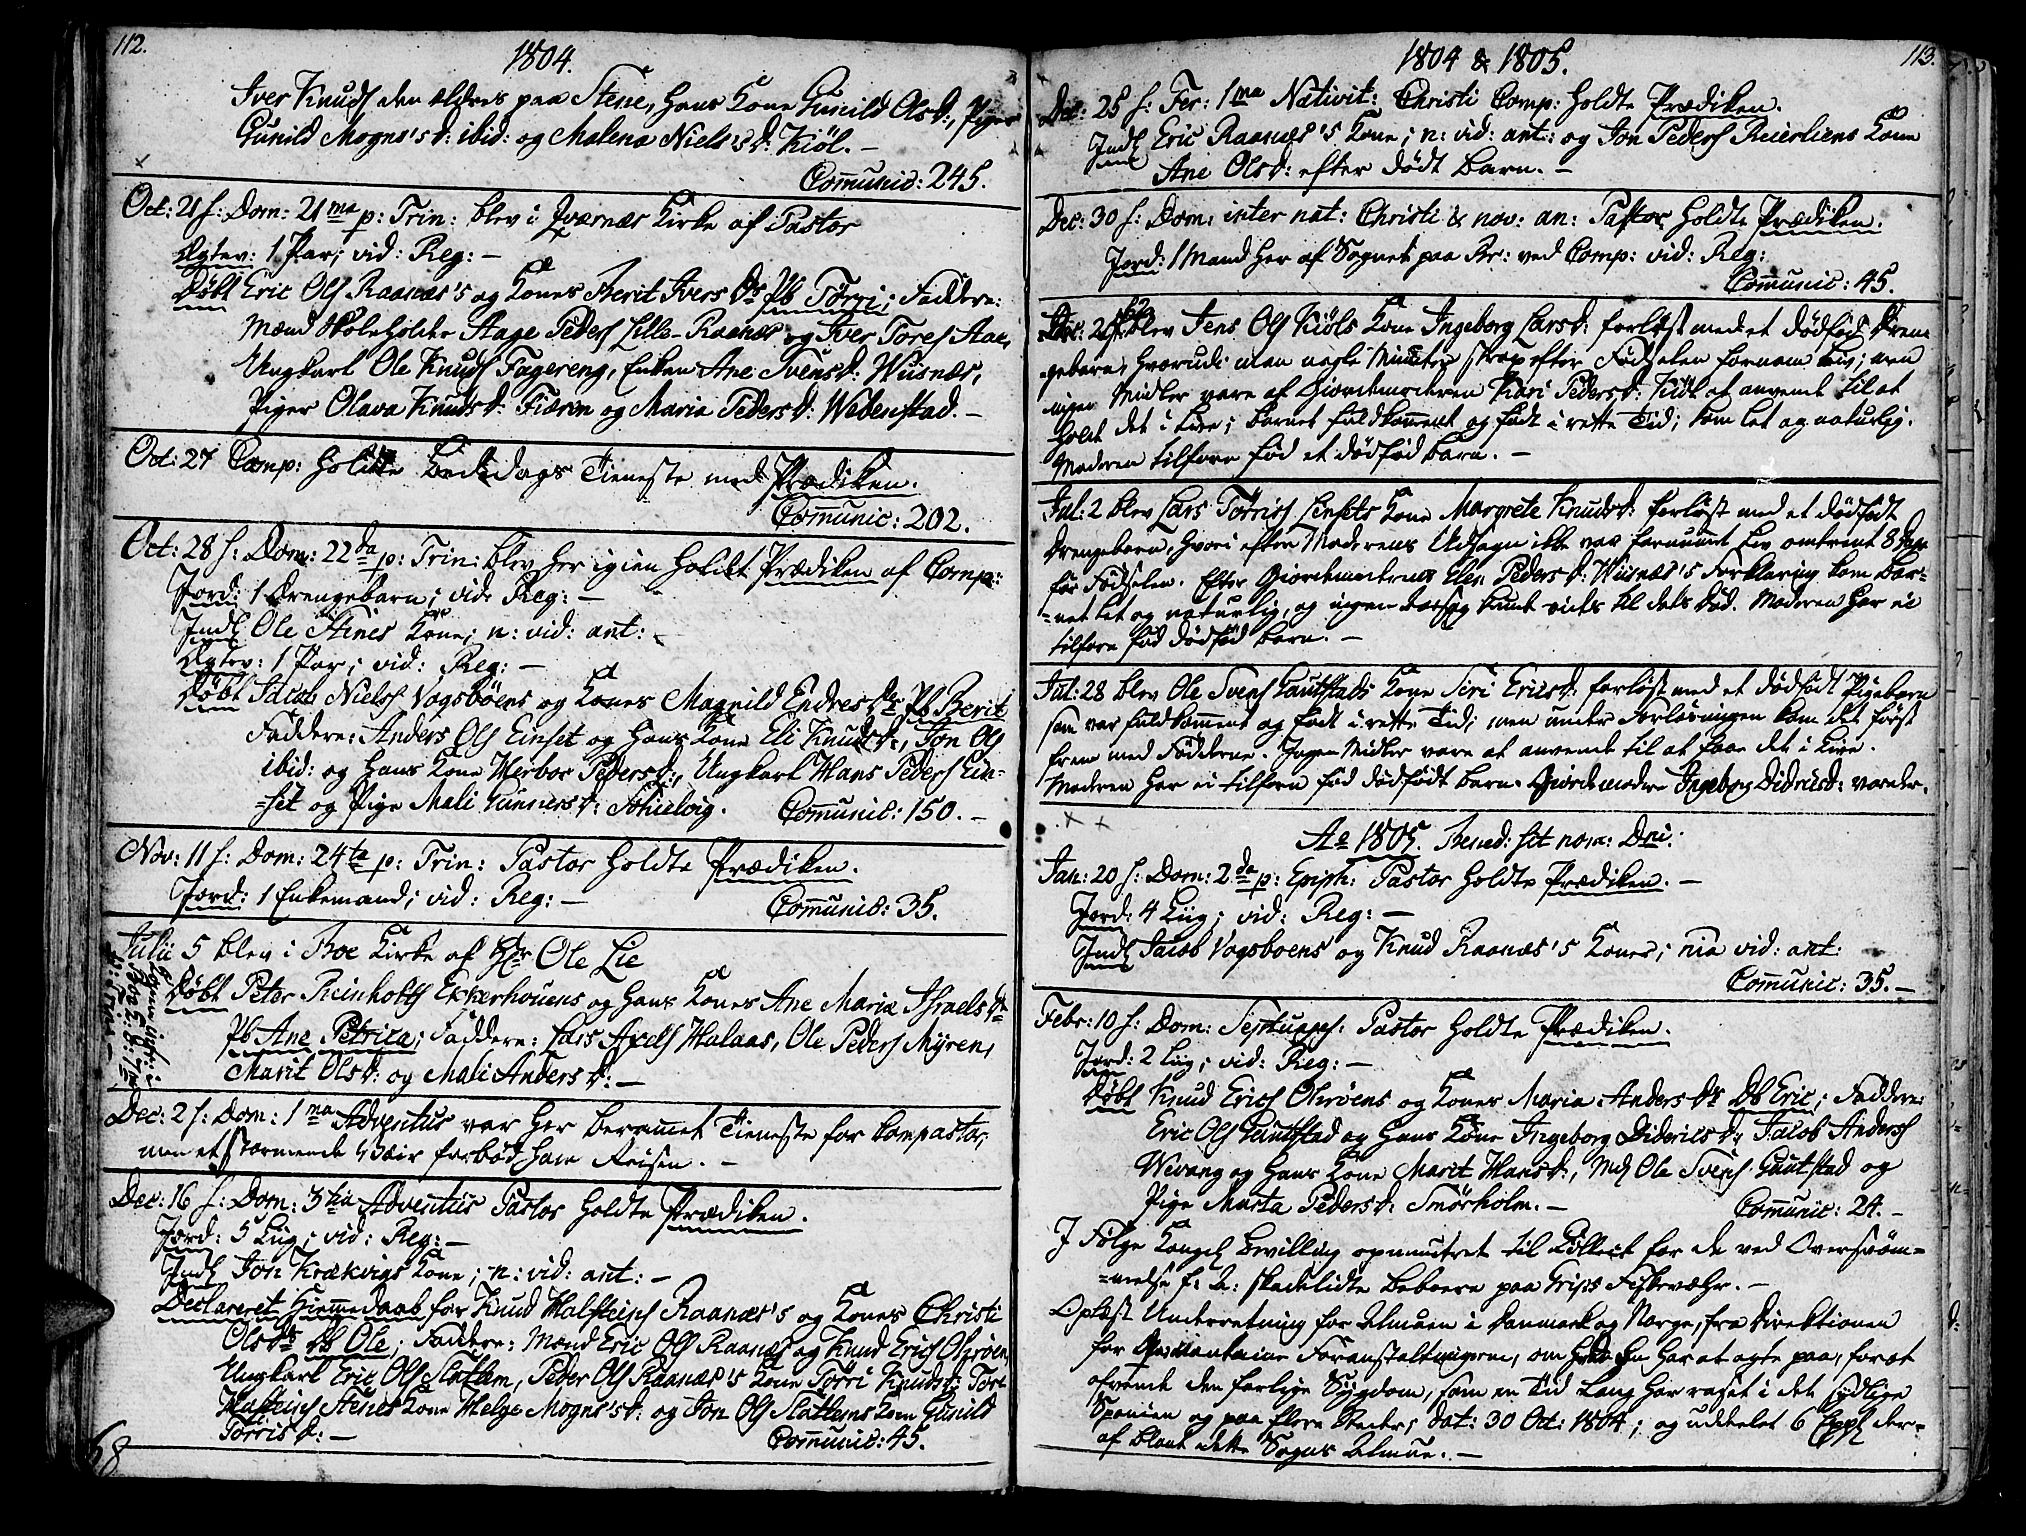 112.
1804.
Iver Knuds den ældres paa Stene, hans Kone Gunild Olsd:, Piger
Gunild Mogns'sd: ibid: og Malena Niels'sd: Kiöl. -
Comunic: 245.
Oct: 21 s: Dom: 21ma p: Trin: blev i Qværnæs Kirke af Pastor
Ægtev: 1 Par; vid: Reg: -
Döbt Eric Ols Raanæs's og Kones Berit Ivers Dr Pb Törri; Faddere:
Mænd Skoleholder Aage Peders Lille-Raanæs og Iver Tores Aae,
Ungkarl Ole Knuds Fagereng, Enken Ane Svensd: Wiisnæs,
Piger Olava Knudsd: Fiærin og Maria Pedersd: Webenstad. -
Oct: 27 Comp: holdte Bededags Tieneste med Prædiken.
Comunic: 202.
Oct: 28 s: Dom: 22da p: Trin: blev her igien holdt Prædiken af Comp:
Jord: 1 Drengebarn; vid: Reg: -
Indl Ole Stines Kone; n: vid: ant: -
Ægtev: 1 Par; vid: Reg: -
Döbt Jacob Niels Vogsböens og Kones Magnild Endres Dr Pb Berit
Faddere: Anders Ols Einset og hans Kone Eli Knudsd:, Jon Ols
ibid: og hans Kone Herbor Pedersd:, Ungkarl Hans Peders Ein-
=set og Pige Mali Gunnersd: Schielvig. Comunic: 150. -
Nov: 11 s: Dom: 24ta p: Trin: Pastor holdte Prædiken.
Jord: 1 Enkemand; vid: Reg: - Comunic: 35.
Julii 5 blev i Boe Kirke af Hr Ole Lie
Döbt Peter Reinholts Ekkerhouens og hans Kones Ane Maria Israels Dr
Pb Ane Petrica; Faddere: Lars Axels Halaas, Ole Peders Myren,
Marit Olsd: og Mali Andersd: -
Dec: 2 s: Dom: 1ma Adventus var her beramet Tieneste for Compastor,
men et stormende Væir forbød ham Reisen. -
Dec: 16 s: Dom: 3tia Adventus Pastor holdte Prædiken.
Jord: 5 Liig; vid: Reg: -
Indl Jon Krækvigs Kone; n: vid: ant: -
Declareret Hiemedaab for Knud Halsteins Raanæs's og Kones Christi
Ols Dr Db Ole; Faddere: Mænd Eric Ols Raanæs og Knud Erics Ohröen,
Ungkarl Eric Ols Slatlem, Peder Ols Raanæs's Kone Törri Knudsd: Tore
Halsteins Stenes Kone Helge Mogns'sd: og Jon Ols Slatlems Kone Gunild
Törrisd: - Comunic: 45.
68
113.
1804 & 1805.
Dec: 25 s: Fer: 1ma Nativit: Christi Comp: holdte Prædiken.
Indl Eric Raanæs's Kone; n: vid: ant: og Jon Peders Reierliens Kone
Ane Olsd: efter dödt Barn. -
Dec: 30 s: Dom: inter nat: Christi & nov: an: Pastor holdte Prædiken.
Jord: 1 Mand her af Sognet paa Br: ved Comp: vid: Reg:
Comunic: 45.
blev Jens Ols Kiöls Kone Ingeborg Larsd: forlöst med et dödfödt Drenge
gebarn, hvorudi man nogle Minuter strax efter Födselen fornam Liv; men
ingen Midler vare af Giordemoderen Kari Pedersd: Kiöl at anvende til at
holde det i Live; Barnet fuldkomment og födt i rette Tid; kom let og naturlig.
Moderen tilforn föd et dödföd Barn. -
Jul: 2 blev Lars Törris Linsets Kone Margrete Knudsd: forlöst med et dödfödt
Drengebarn, hvori efter Moderens Udsagn ikke var fornummet Liv omtrent 8 Dage
för Födselen. Efter Giordemoderens Elen Pedersd: Wiisnæs's Forklaring kom Bar-
=net let og naturlig, og ingen Aarsag kunde vides til dets Död. Moderen har ei
tilforn föd dödföd Barn. -
Jul: 28 blev Ole Svens Gautstads Kone Siri Ericsd: forlöst med et dödfödt Pigebarn
som var fuldkomment og födt i rette Tid; men under Forlösningen kom det först
frem med Födderne. Ingen Midler vare at anvende til at faae det i Live.
Moderen har ei tilforn föd dödfödt Barn. Giordemoder Ingeborg Didricsd: Vorder.
Ao 1805. Bened: sit nom: Dni:
Jan: 20 s: Dom: 2da p: Epiph: Pastor holdte Prædiken. -
Jord: 4 Liig; vid: Reg: -
Indl Jacob Vogsboens og Knud Raanæs's Kones; nia vid: ant:
Comunic: 35. -
Febr: 10 s: Dom: Septuages: Pastor holdte Prædiken.
Jord: 2 Liig; vid: Reg: -
Döbt Knud Erics Ohröens og Kones Maria Anders Dr Db Eric; Faddere:
Eric Ols Gautstad og hans Kone Ingeborg Didericsd:, Jacob Anders
Wevang og hans Kone Marit Hansd:, Md Ole Svens Gautstad og
Pige Marta Pedersd: Smörholm. - Comunic: 24. -
I Fölge Kongel Bevilling opmuntret til Collect for de ved Oversvöm-
=melse s: A: skadelidte Beboere paa Grips Fiskevæhr. -
Oplæst Underretning for Almuen i Danmark og Norge, fra Direktionen
for Qvarantaine Foranstaltningerne, om hvad En har at agte paa, for at
afvende den farlige Sygdom, som en Tid lang har raset i det sydlige
Spanien og paa flere Steder, dat: 30 Oct: 1804; og uddelet 6 Expl der-
af blant dette Sogns Almue. -